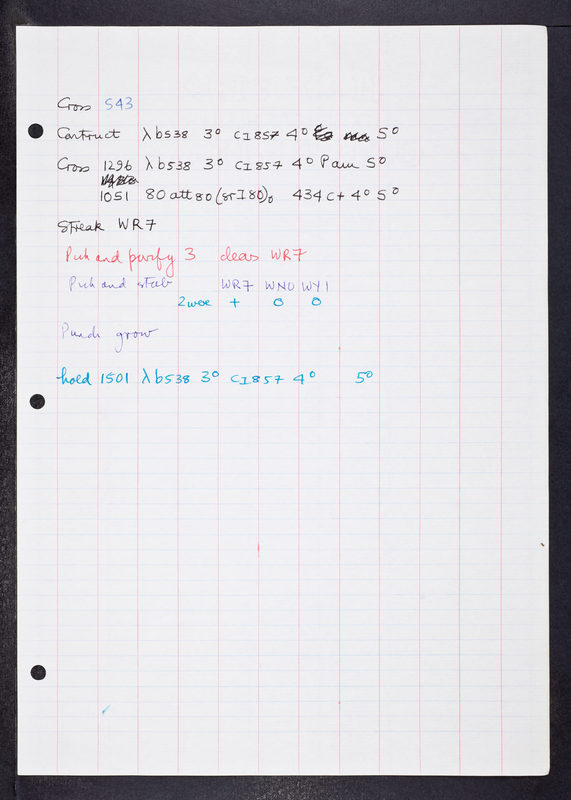 Cross 543
Construct λb538 3° cI857 4° 5°
Cross 1296 λb538 3° cI857 4° Pam 5°
1051 80 att80 (srI80)₀ 434 c+ 4° 5°
Streak WR7
Pick and purify 3 clears WR7
Pick and stab WR7 WNO WY1
+ 0 0
Punch grow
hold 1501 λb538 3° cI857 4° 5°